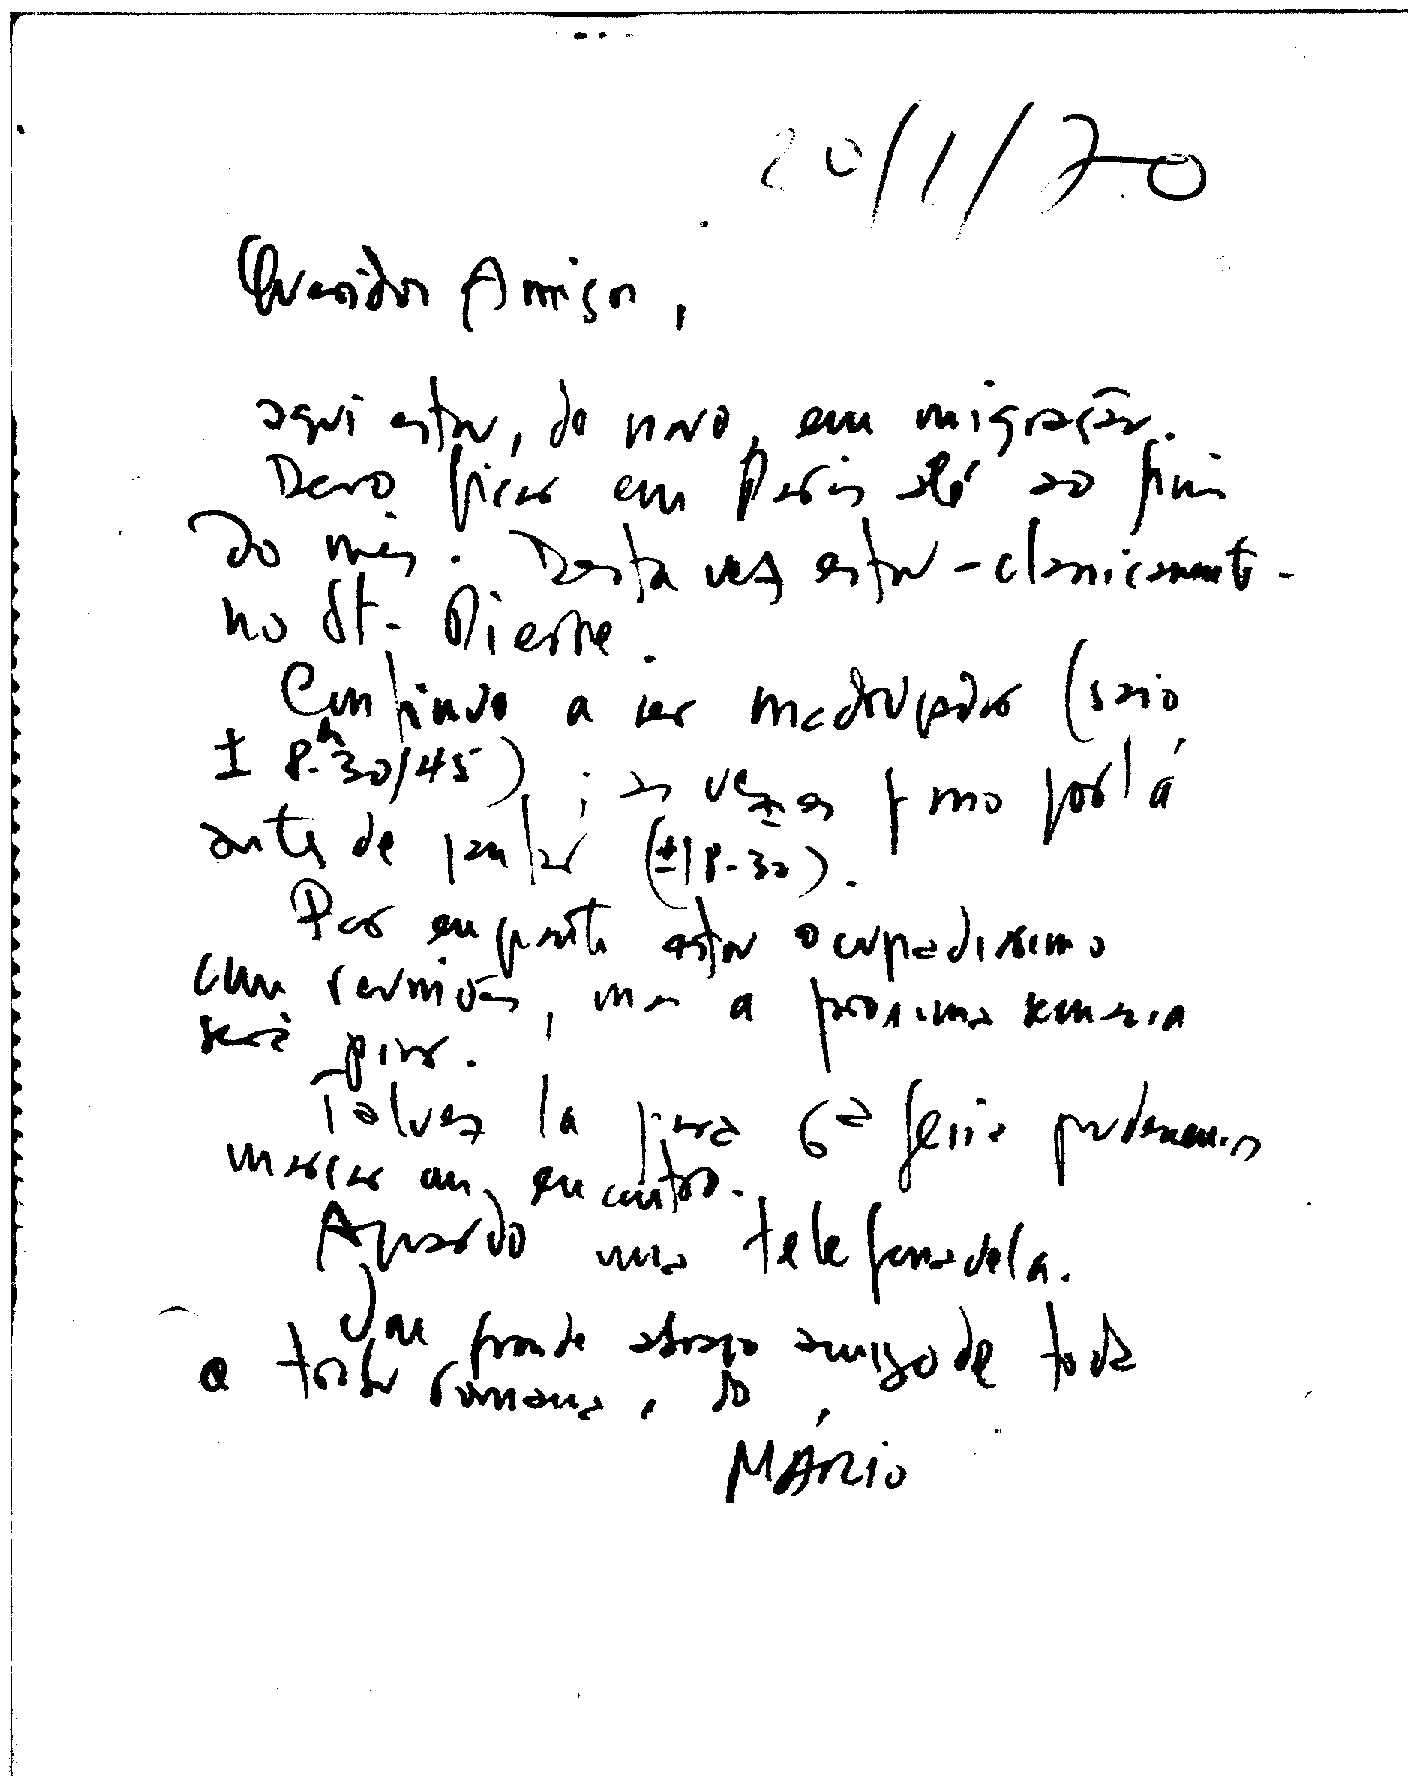 20/1/70
Queridos Amigos,
aqui estou, de novo, em migração.
Devo ficar em Paris até ao fim
do mês. Desta vez estou - classicamente -
no St. Pierre.
Continuo a ser madrugador (saio
± 8.h30/45); às vezes passo por lá
antes de jantar (±18.30).
Por enquanto estou ocupadissimo
com reuniões, mas a próxima semana
será pior.
Talvez lá para 6ª feira pudessemos
marcar um encontro.
Aguardo uma telefonadela.
Um grande abraço amigo de toda
a tribu romana, do
MÁRIO